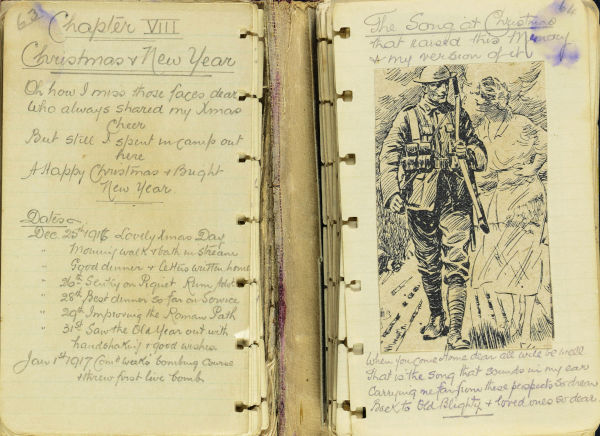 63
Chapter VIII
Christmas & New Year
Oh how I miss those faces dear
Who always shared my Xmas
Cheer
But still I spent in camp out
here
A Happy Christmas & Bright
New Year.
Dates
Dec. 25th 1916 Lovely Xmas Day
" Morning walk & bath in stream
" Good dinner & letters written home
" 26th Sentry on Piquet Rum
" 28th Best dinner so far on Service
" 29th Improving the Roman Path
" 31st Saw the Old Year out with
handshaking & good wishes
Jan 1st 1917 bombing Course
& threw first live bomb.
64
The Song at Christmas
that raised this Memory
& my version of it
When you come Home dear all will be well
That is the song that sounds in my ear
Carrying me far from these so drear
Back to Old Blighty & loved ones so dear.